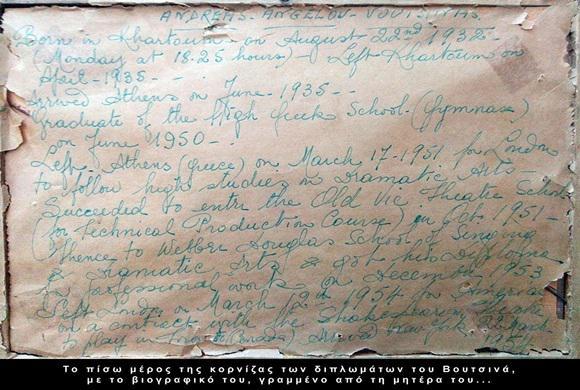 ANDREAS-ANGELOU-VOUTSINAS.
Born in Khartoum - on August 22nd 1932 -
(Monday at 18.25 hours) - Left Khartoum on
April - 1935 - -
Arrived Athens on June - 1935 - -
Graduate of the High Greek School - (Gymnase)
on June 1950 - .
Left - Athens (Greece) on March 17 - 1951 for London
to follow high studies in Dramatic Arts -
Succeeded to enter the Old Vic Theatre School
(for Technical Production Course) on Oct. 1951 -
Thence to Webber Douglas School of Singing
& Dramatic Arts & got his Diploma
for professional works on December 1953
Left London on March 12th 1954 for America
on a contract with the Shakespearean
to play in (Canada) Arrived New York, 22 March
1954
Το πίσω μέρος της κορνίζας των διπλωμάτων του Βουτσινά,
με το βιογραφικό του, γραμμένο από τη μητέρα του...